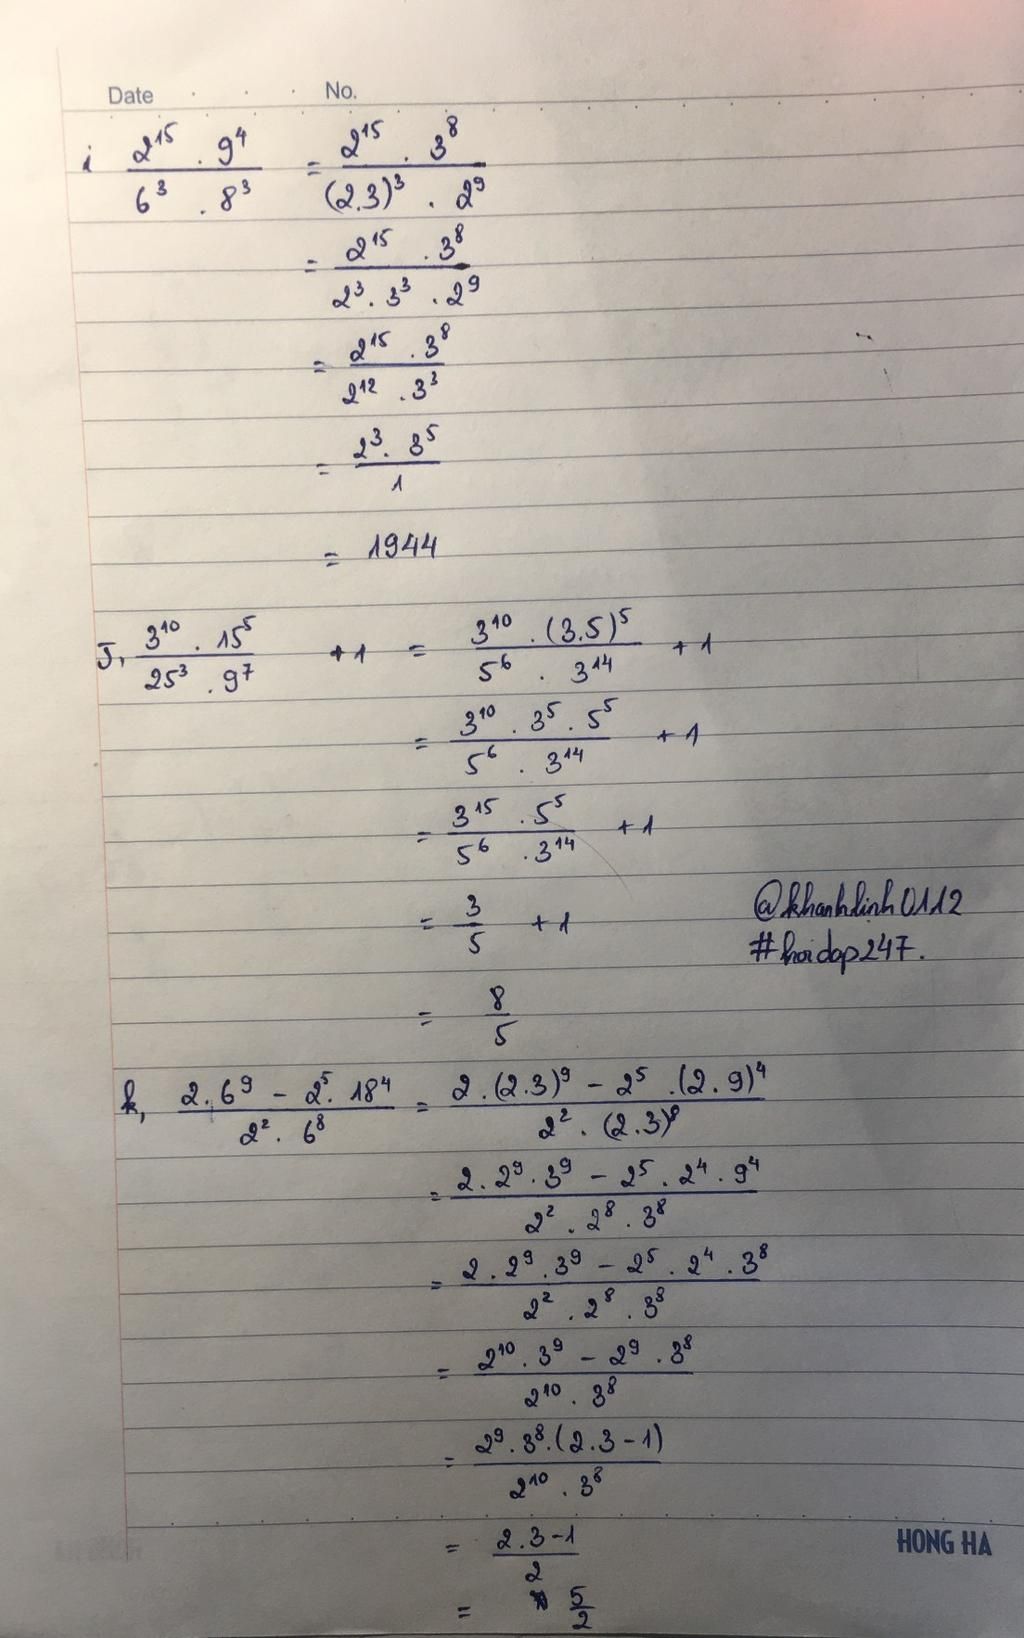 Date No.
i 2¹⁵ . 9⁴ / 6³ . 8³ = 2¹⁵ . 3⁸ / (2.3)³ . 2⁹
= 2¹⁵ . 3⁸ / 2³ . 3³ . 2⁹
= 2¹⁵ . 3⁸ / 2¹² . 3³
= 2³ . 3⁵ / 1
= 1944
J, 3¹⁰ . 15⁵ / 25³ . 9⁷ + 1 = 3¹⁰ . (3.5)⁵ / 5⁶ . 3¹⁴ + 1
= 3¹⁰ . 3⁵ . 5⁵ / 5⁶ . 3¹⁴ + 1
= 3¹⁵ . 5⁵ / 5⁶ . 3¹⁴ + 1
= 3 / 5 + 1
@khanhlinh0112
#hoidap247.
= 8 / 5
k, 2 . 6⁹ - 2⁵ . 18⁴ / 2² . 6⁸ = 2 . (2.3)⁹ - 2⁵ . (2.9)⁴ / 2² . (2.3)⁸
= 2 . 2⁹ . 3⁹ - 2⁵ . 2⁴ . 9⁴ / 2² . 2⁸ . 3⁸
= 2 . 2⁹ . 3⁹ - 2⁵ . 2⁴ . 3⁸ / 2² . 2⁸ . 3⁸
= 2¹⁰ . 3⁹ - 2⁹ . 3⁸ / 2¹⁰ . 3⁸
= 2⁹ . 3⁸ . (2.3 - 1) / 2¹⁰ . 3⁸
= 2.3 - 1 / 2
HONG HA
= 5 / 2